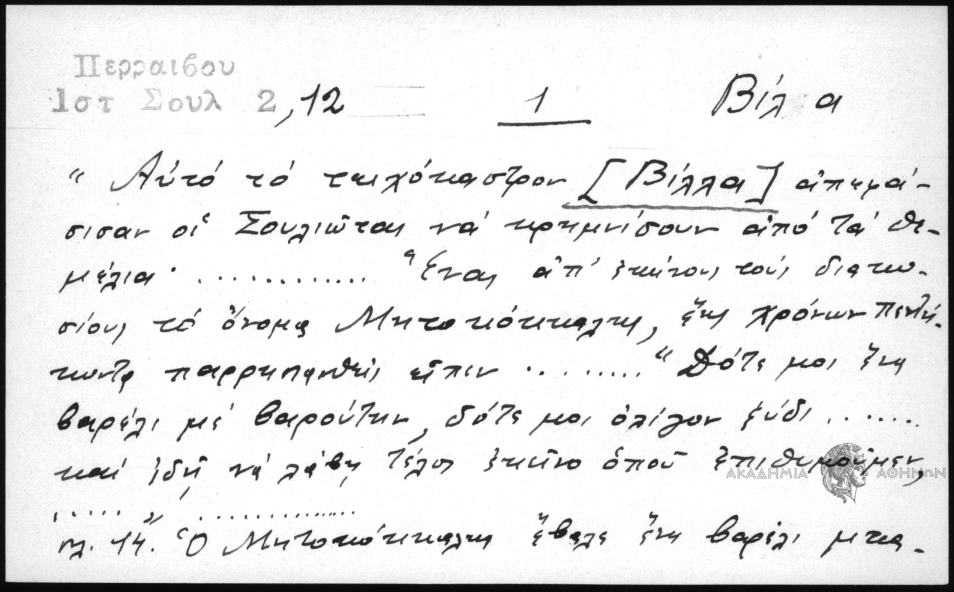 Περραιβου
Ιστ Σουλ 2,12 1 Βίλα
"Αὐτό τό τειχόκαστρον [Βίλλα] ἀπεφά-
σισαν οἱ Σουλιῶται νά κρημνίσουν ἀπό τά θε-
μέλια· ............ "Ἕνας ἀπ' ἐκείνους τούς διακο-
σίους τό ὄνομα Μητοκόκκαλης, ἕως χρόνων πεντή-
κοντα παρρησιασθείς εἶπεν ........ "Δότε μοι ἕνα
βαρέλι μέ βαρούτην, δότε μοι ὀλίγον ξύδι .......
καί ἰδῆ νά λάβῃ τέλος ἐκεῖνο ὁποῦ ἐπιθυμοῦμεν,
....." ...............
σλ. 14. Ὁ Μητοκόκκαλης ἔβαλε ἕνα βαρέλι μπα-
ΑΚΑΔΗΜΙΑ ΑΘΗΝΩΝ